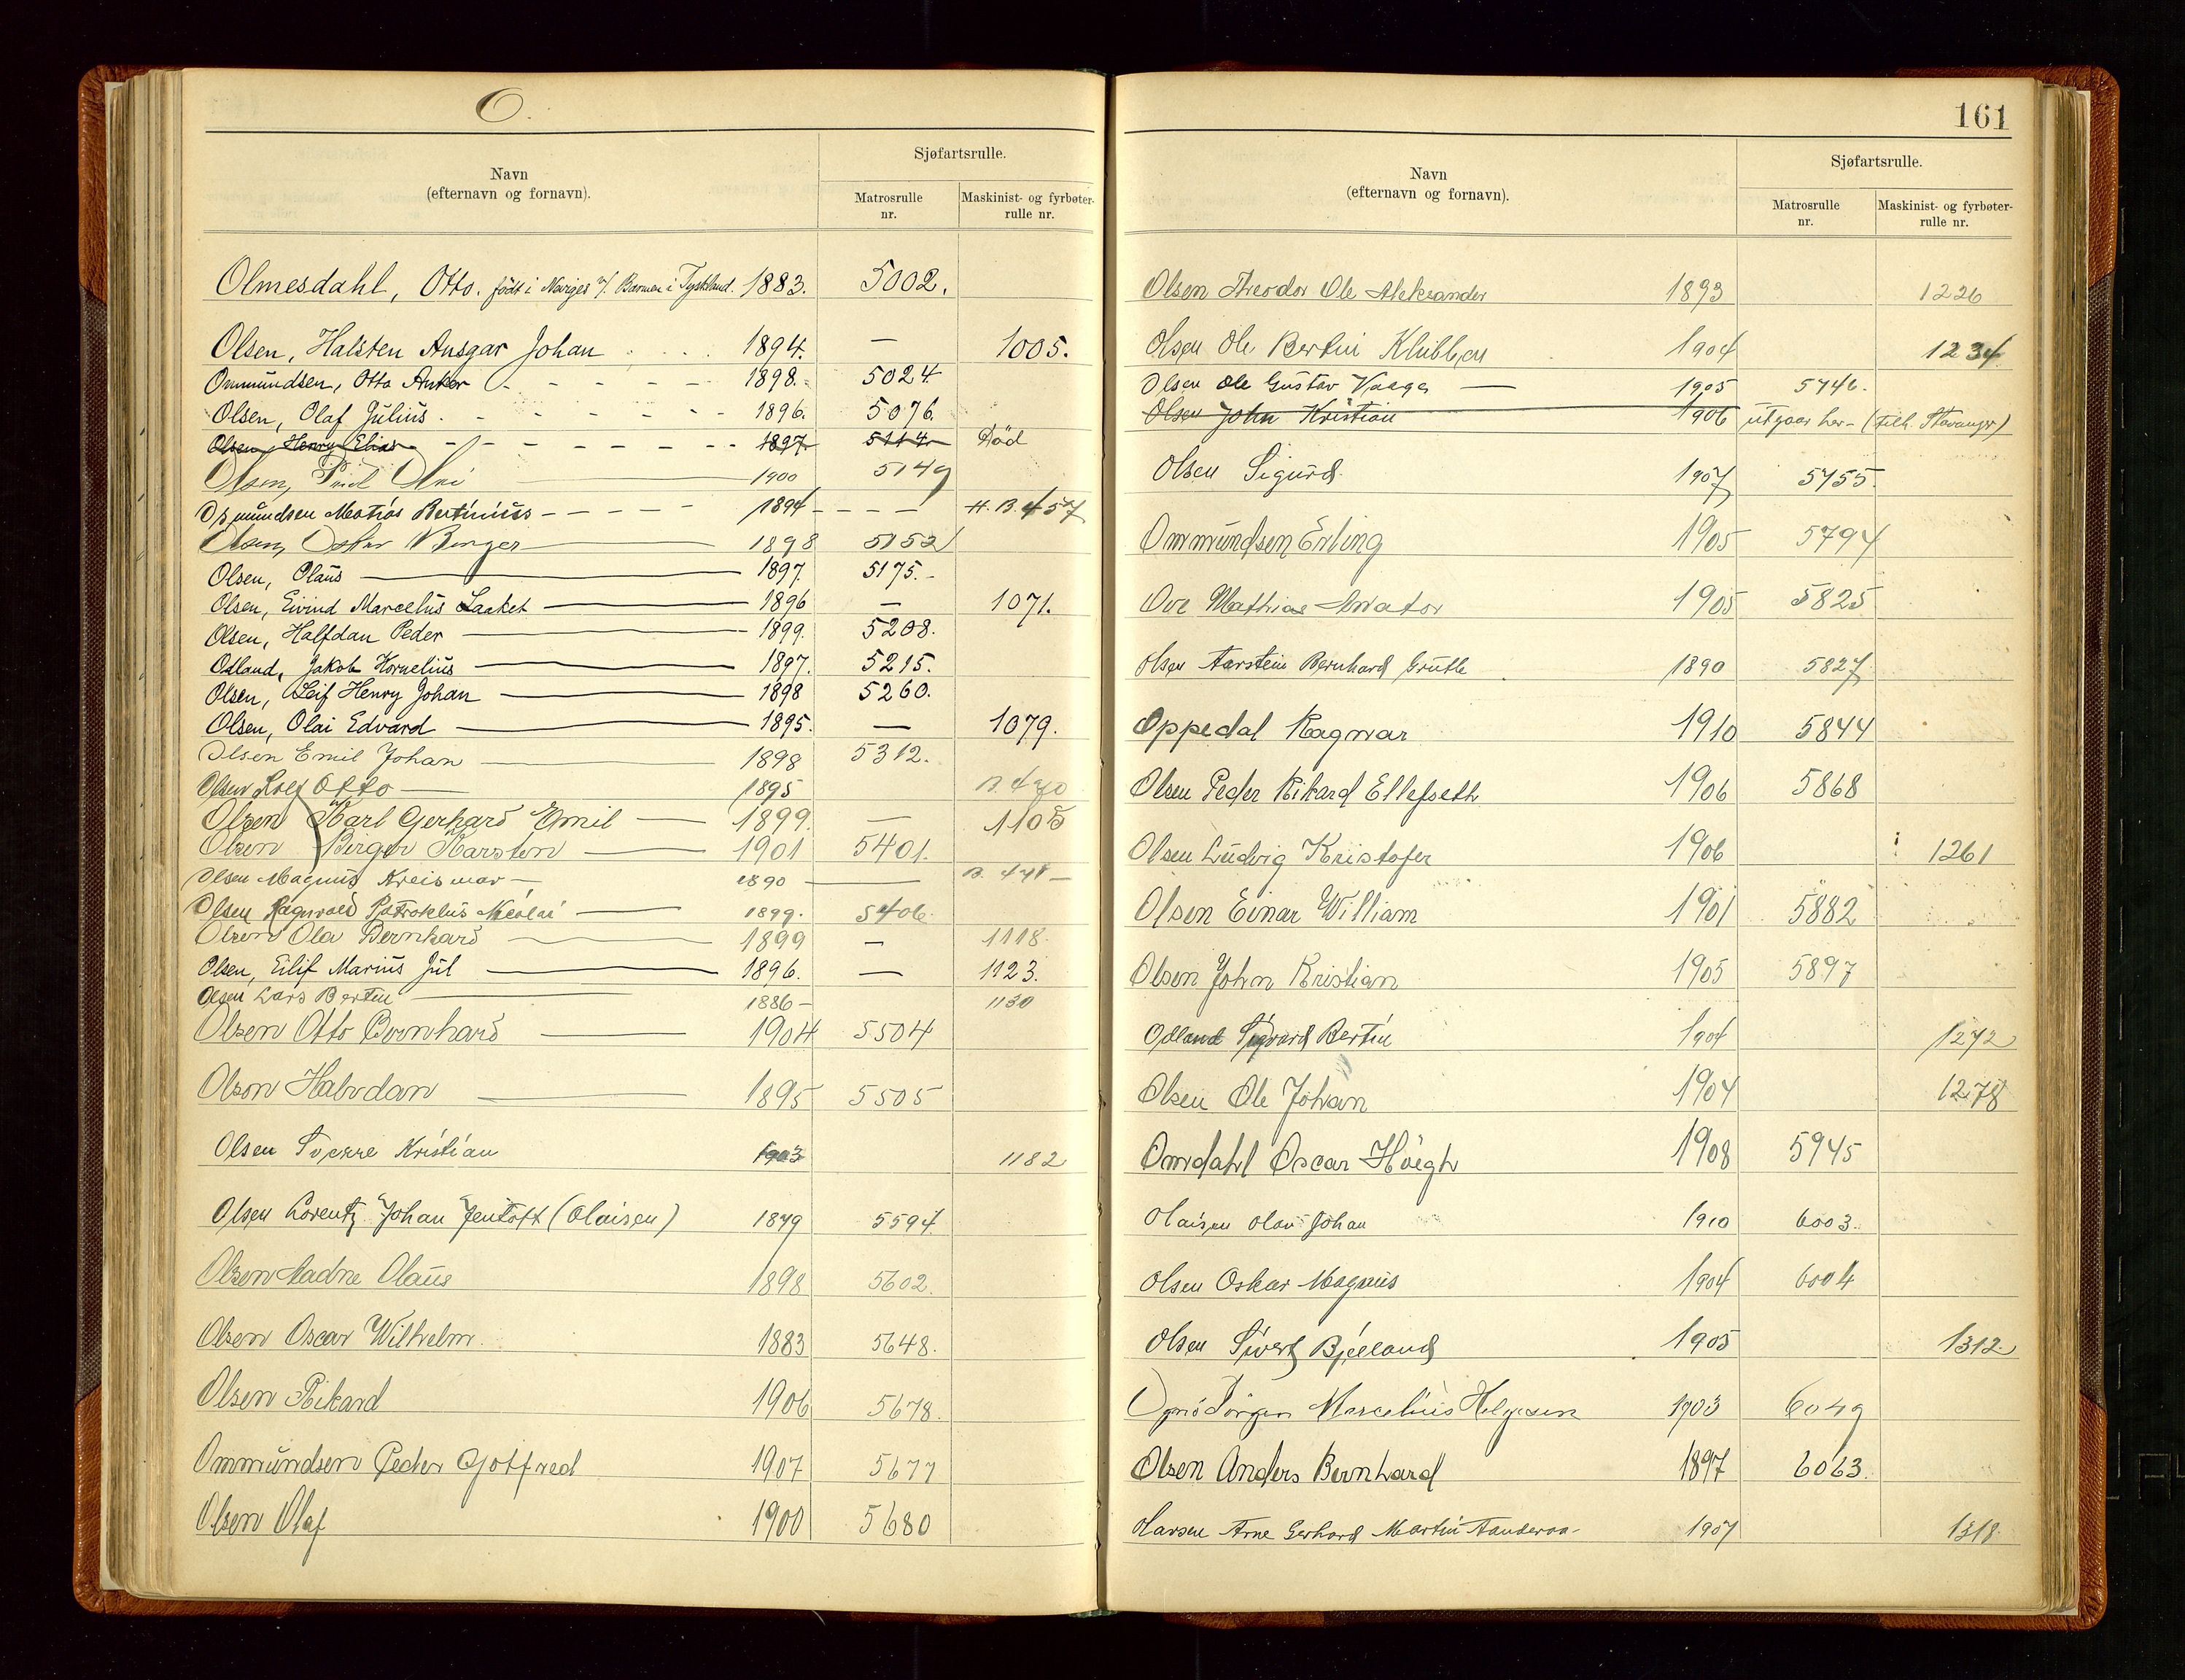 O.
Navn
(efternavn og fornavn).
Sjøfartsrulle.
Matrosrulle
nr.
Maskinist- og fyrbøter-
rulle nr.
Olmesdahl, Otto. født i Norges %. Barmen i Tyskland. 1883. 5002.
Olsen, Halsten Ansgar Johan 1894. — 1005.
Ommundsen, Otto Anker - - - - - 1898. 5024.
Olsen, Olaf Julius. - - - - - - 1896. 5076.
Olsen, Henry Elias - - - - - - - 1897. 5114. Død
Olsen, 1900 5149
Opmundsen Matias Bertinius - - - - - 1894 - - - - H. B. 457
Olsen, Birger 1898 5152
Olsen, Olaus — 1897. 5175.
Olsen, Eivind Marcelius Laaket — 1896 — 1071.
Olsen, Halfdan Peder — 1899. 5208.
Odland, Jakob Kornelius — 1897. 5215.
Olsen, Leif Henry Johan — 1898 5260.
Olsen, Olai Edvard — 1895. — 1079.
Olsen Emil Johan — 1898 5312.
Olsen Rolf Otto — 1895 B. 470
Olsen Karl Gerhard Emil — 1899. — 1105
Olsen Birger Karsten — 1901 5401.
Olsen Magnus Kreismar — 1890 — B. 471 —
Olsen Ragnvald Patroklus Nicolai — 1899. 5406.
Olsen Ola Bernhard — 1899 — 1118.
Olsen, Eilif Marius Jul — 1896. — 1123.
Olsen Lars Bertin — 1886 - 1130
Olsen Otto Bernhard — 1904 5504
Olsen Halvdan — 1895 5505
Olsen Sverre Kristian 1903 1182
Olsen Lorentz Johan Jentoft (Olaisen) 1879 5594.
Olsen Aadne Olaus 1898 5602.
Olsen Oscar Wilhelm. 1883 5648.
Olsen Rikard 1906 5678.
Ommundsen Peder Gotfred 1907 5677
Olsen Olaf 1900 5680
161
Navn
(efternavn og fornavn).
Sjøfartsrulle.
Matrosrulle
nr.
Maskinist- og fyrbøter-
rulle nr.
Olsen Theodor Ole Aleksander 1893 1226
Olsen Ole Bertin Klubben 1904 1234
Olsen Ole Gustav Vaage — 1905 5746.
Olsen John Kristian 1906 utgaar her - (tilh. Stavanger)
Olsen Sigurd 1907 5755.
Ommundsen Erling 1905 5794
Ove Mathias Amator 1905 5825
Olsen Aarstein Bernhard Grutle 1890 5827
Oppedal Ragnvar 1910 5844
Olsen Peder Rikard Ellefseth 1906 5868
Olsen Ludvig Kristofer 1906 1261
Olsen Einar William 1901 5882
Olsen John Kristian 1905 5897
Odland Sigvard Bertin 1904 1272
Olsen Ole Johan 1904 1278
Omdahl Oscar Höigh 1908 5945
Olaisen Olav Johan 1910 6003.
Olsen Oskar Magnus 1904 6004
Olsen Sivert Bjelland 1905 1312.
Marcelius Helgesen 1903 6049
Olsen Anders Bernhard 1897 6063.
Arne Gerhard Martin 1907 1318.